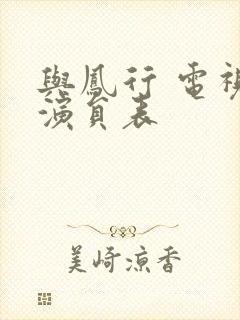 與鳳行 電視
演員表
美崎涼香